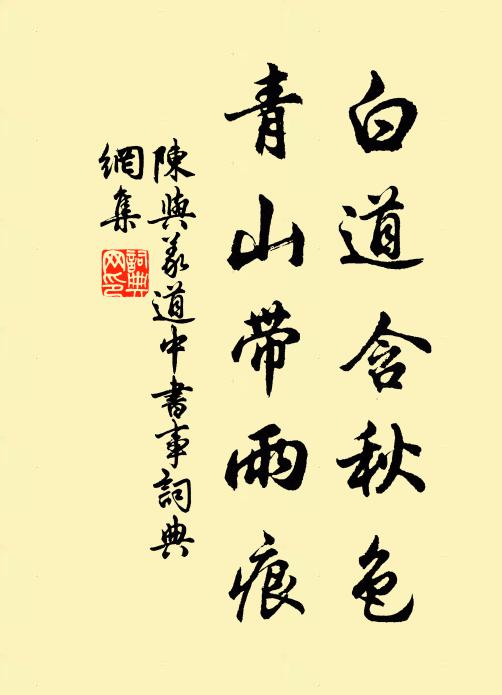 白道含秋色
青山帶雨痕
陳與義道中書事詞典
網集
詞典
网印